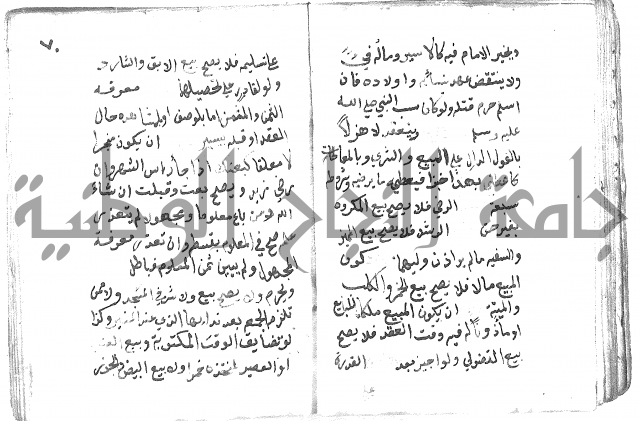 ويخير الامام فيه كالاسير وماله في
ولا ينتقض عهد نسائه واولاده فان
اسلم حرم قتله ولو كان سب النبي صلى الله
عليه وسلم وينعقد لا هزلا
بالقول الدال على البيع والشرى وبالمعاطاة
كاعطني بهذا خبزا فيعطيه ما يرضيه وشروطه
سبعة الرضى فلا يصح بيع المكره
الرشد فلا يصح بيع
والسفيه مالم ياذن وليهما كون
المبيع مالا فلا يصح بيع الخمر والكلب
والميتة ان يكون المبيع ملكا للبايع
او ماذونا له فيه وقت العقد فلا يصح
بيع الفضولي ولو اجيز بعد القدرة
٧٠
على تسليمه فلا يصح بيع الابق والشارد
ولو لقادر على تحصيلهما معرفة
الثمن والمثمن اما بالوصف او المشاهدة حال
العقد او قبله بيسير ان يكون منجزا
لا معلقا كبعتك اذا جاء راس الشهر او ان
رضي زيد ويصح بعت وقبلت ان شاء
الله ومن باع معلوما ومجهولا لم يتعذر
علمه صح في المعلوم بقسطه وان تعذر معرفة
المجهول ولم يبين ثمن المعلوم فباطل
ويحرم ولا يصح بيع ولا شرى في المسجد ولا ممن
تلزمه الجمعة بعد ندائها الذي عند المنبر وكذا
لو تضايق الوقت المكتوبة وبيع العنب
او العصير لمتخذه خمرا ولا بيع البيض والجوز
جامعة النجاح الوطنية